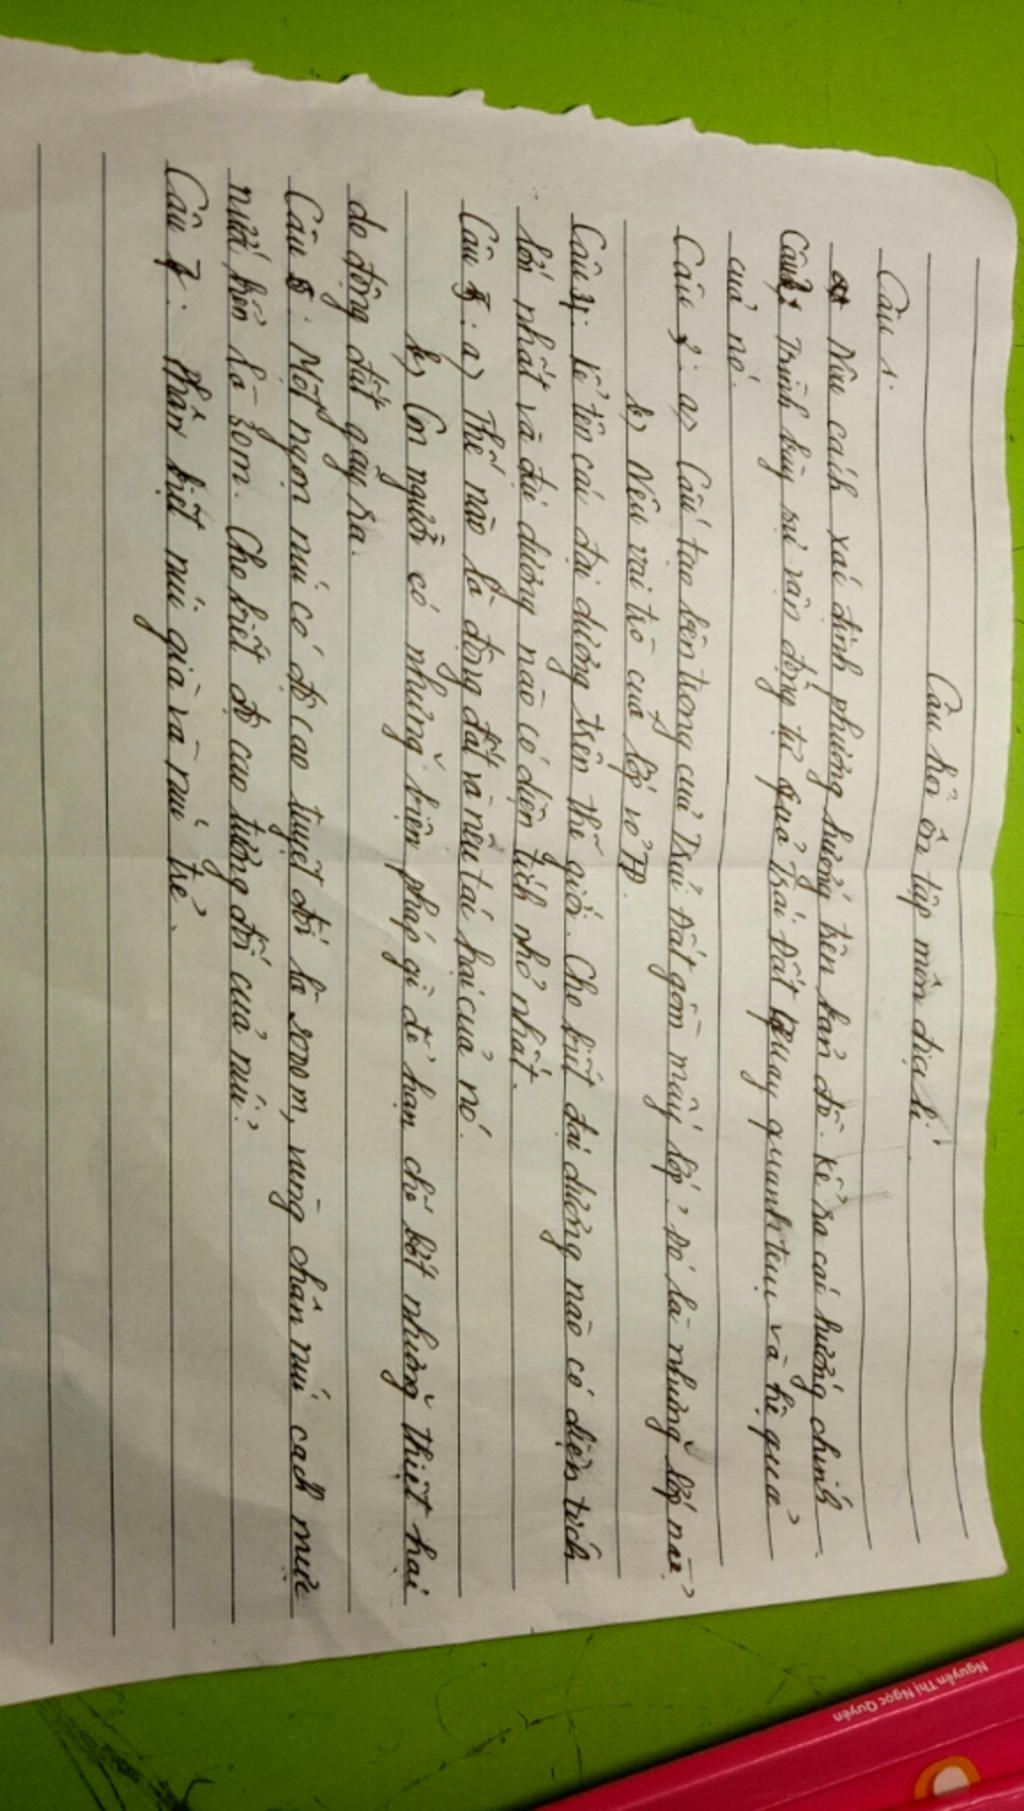 Câu hỏi ôn tập môn địa lí
Câu 1:
Nêu cách xác định phương hướng trên bản đồ. Kể ra các hướng chính
Câu 2: Trình bày sự vận động tự quay Trái Đất quay quanh trục và hệ quả
của nó.
Câu 3: a) Cấu tạo bên trong của Trái Đất gồm mấy lớp? Đó là những lớp nào?
b) Nêu vai trò của lớp vỏ TĐ.
Câu 4: Kể tên các đại dương trên thế giới. Cho biết đại dương nào có diện tích
lớn nhất và đại dương nào có diện tích nhỏ nhất.
Câu 5: a) Thế nào là động đất và nêu tác hại của nó.
b) Con người có những biện pháp gì để hạn chế bớt những thiệt hại
do động đất gây ra.
Câu 6: Một ngọn núi có độ cao tuyệt đối là m, vùng chân núi cách mực
nước biển là 50m. Cho biết độ cao tương đối của núi?
Câu 7: Phân biệt núi già và núi trẻ.
Nguyễn Thị Ngọc Quyên